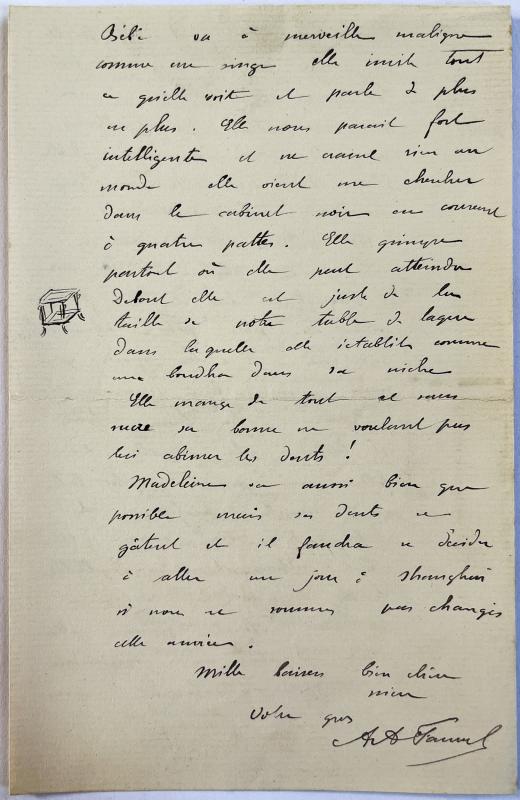 Bébé va à merveille maligne
comme une singe elle imite tout
ce qu'elle voit et parle de plus
en plus. Elle nous parait fort
intelligente et ne craint rien au
monde elle vient me chercher
dans le cabinet noir en courant
à quatre pattes. Elle grimpe
partout où elle peut atteindre
debout elle est juste de la
taille de notre table de laque
dans laquelle elle s'établit comme
une boudha dans sa niche
Elle mange de tout et sans
sucre sa bonne ne voulant pas
lui abimer les dents !
Madeleine va aussi bien que
possible mais ses dents se
gâtent et il faudra se décider
à aller un jour à Shanghai
si nous ne sommes pas changés
cette année.
Mille baisers bien chère
mère
Votre gros